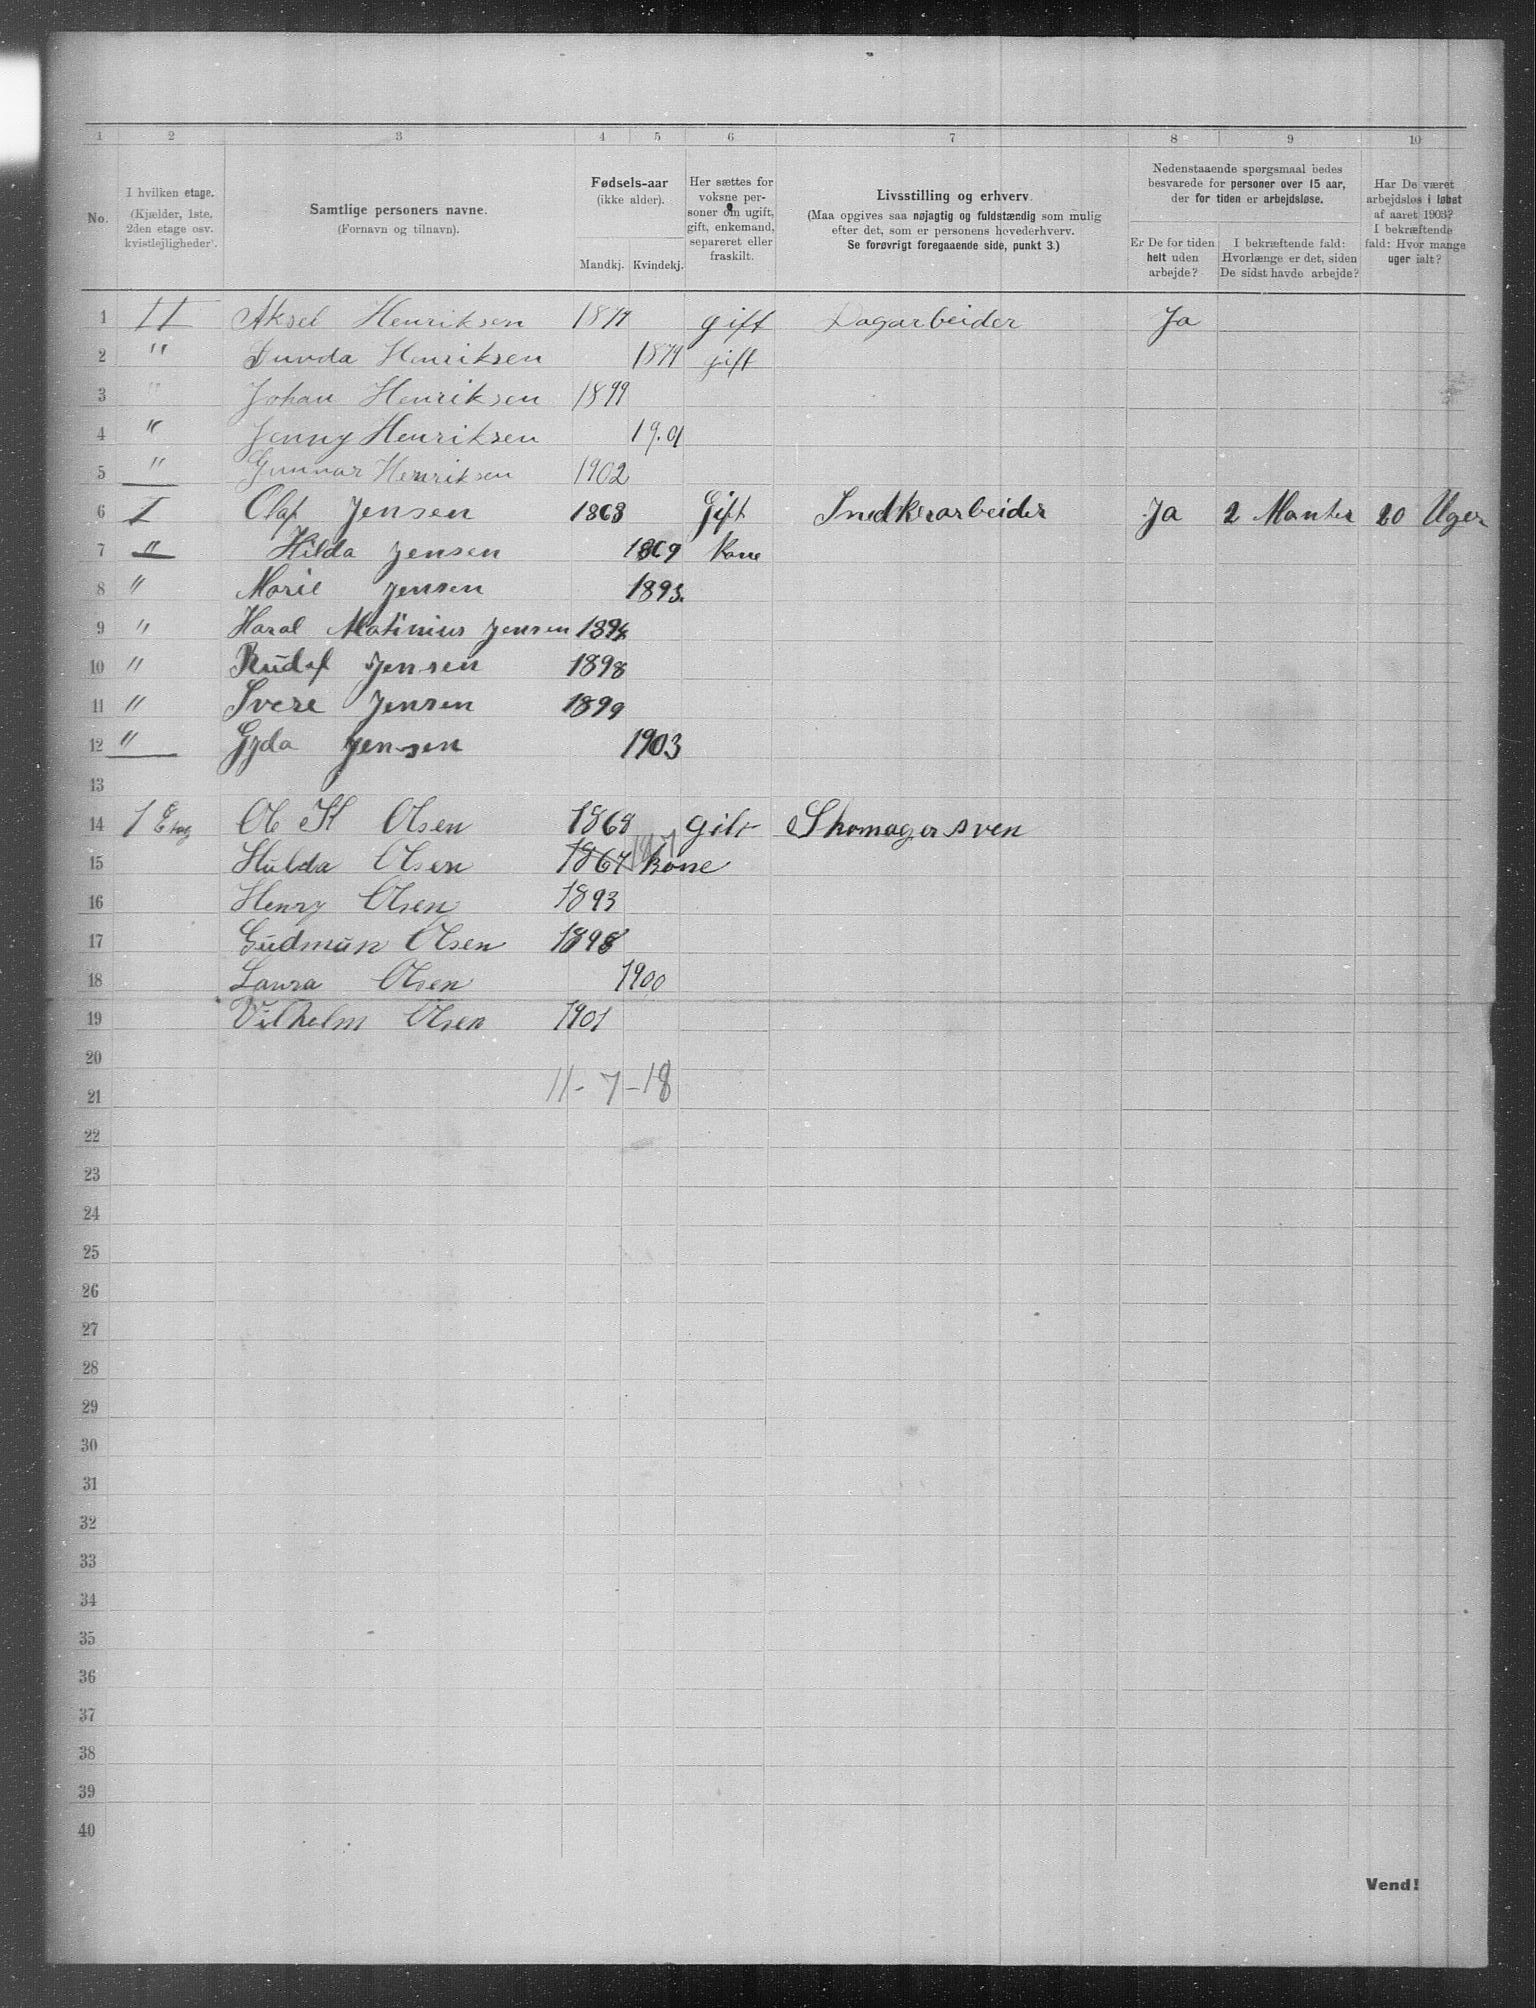 1 2 3 4 5 6 7 8 9 10
No.
I hvilken etage.
(Kjælder, 1ste,
2den etage osv.
kvistlejligheder).
Samtlige personers navne.
(Fornavn og tilnavn).
Fødsels-aar
(ikke alder).
Mandkj. Kvindekj.
Her sættes for
voksne per-
soner om ugift,
gift, enkemand,
separeret eller
fraskilt.
Livsstilling og erhverv.
(Maa opgives saa nøjagtig og fuldstændig som mulig
efter det, som er personens hovederhverv.
Se forøvrigt foregaaende side, punkt 3.)
Nedenstaaende spørgsmaal bedes
besvarede for personer over 15 aar,
der for tiden er arbejdsløse.
Er De for tiden
helt uden
arbejde?
I bekræftende fald:
Hvorlænge er det, siden
De sidst havde arbejde?
Har De været
arbejdsløs i løbet
af aaret 1903?
I bekræftende
fald: Hvor mange
uger ialt?
1 II Aksel Henriksen gift Dagarbeider Ja
2 " Henriksen gift
3 " Johan Henriksen 1899
4 " Jenny Henriksen 19.01
5 " Gunnar Henriksen 1902
6 I Olaf Jensen 1863 Gift Snedkerarbeider Ja 2 Manter 20 Uger
7 " Hilda Jensen 1869 Kone
8 " Marie Jensen 1893.
9 " Haral Matinius Jensen 1894
10 " Rudof Jensen 1898
11 " Svere Jensen 1899
12 " Gyda Jensen 1903
13
14 1 Etag Ole H Olsen 1868 gift Skomagersven
15 Hulda Olsen 1867 kone
16 Henry Olsen 1893
17 Gudmun Olsen 1898
18 Laura Olsen 1900
19 Vilhelm Olsen 1901
20
11-7-18
21
22
23
24
25
26
27
28
29
30
31
32
33
34
35
36
37
38
39
40
Vend!